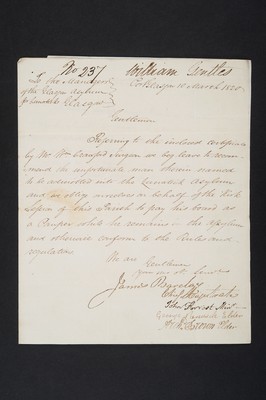 No 237 William Gentles
To the Managers
of the Glasgow Asylum
for Lunatics Glasgow
Port Glasgow 10 March 1820
Gentlemen
Refering to the inclosed certificate
by Mr Wm Crawford Surgeon we beg leave to recom-
mend the unfortunate man therein named
to be admitted into the Lunatick Asylum
and we offer ourselves in behalf of the Kirk
Session of this Parish to pay his board as
a Pauper while he remains in the Asylum
and otherwise conform to the Rules and
regulations
We are Gentlemen
Your
James Barclay
John Forrest Min
Elder
Elder